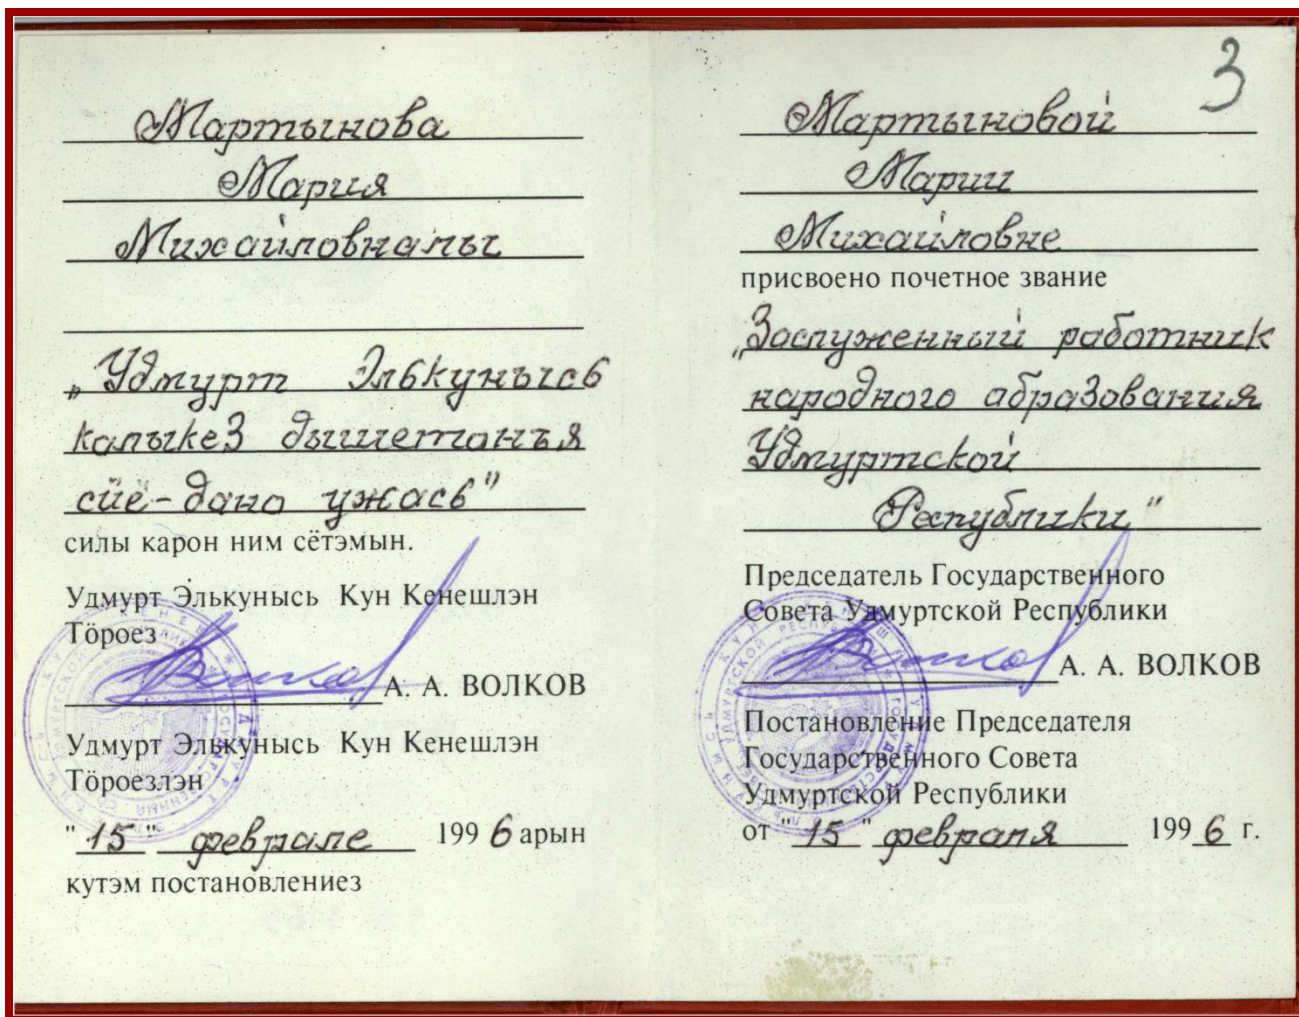 Мартынова
Мария
Михайловналы
„Удмурт Элькунысь
калыкез дышетонъя
сйё-дано ужась"
силы карон ним сётэмын.
Удмурт Элькунысь Кун Кенешлэн
Тӧроез
А. А. ВОЛКОВ
Удмурт Элькунысь Кун Кенешлэн
Тӧроезлэн
"15" феврале 1996 арын
кутэм постановлениез
3
Мартыновой
Марии
Михайловне
присвоено почетное звание
„Заслуженный работник
народного абразования
Удмуртской
Республики"
Председатель Государственного
Совета Удмуртской Республики
А. А. ВОЛКОВ
Постановление Председателя
Государственного Совета
Удмуртской Республики
от "15" февраля 1996 г.